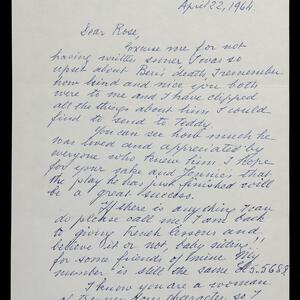 April 22, 1964.
Dear Rose,
Excuse me for not
having written sooner I was so
upset about Ben's death, I remember
how kind and nice you both
were to me and I have clipped
all the things about him I could
find to send to Teddy.
You can see how much he
was loved and appreciated by
everyone who knew him I hope
for your sake and Jennie's that
the play he has just finished will
be a great success.
If there is anything I can
do please call me I am back
to giving French lessons and
believe it or not, baby sitting!!
for some friends of mine My
number is still the same 5.5689
I know you are a woman
of your character so